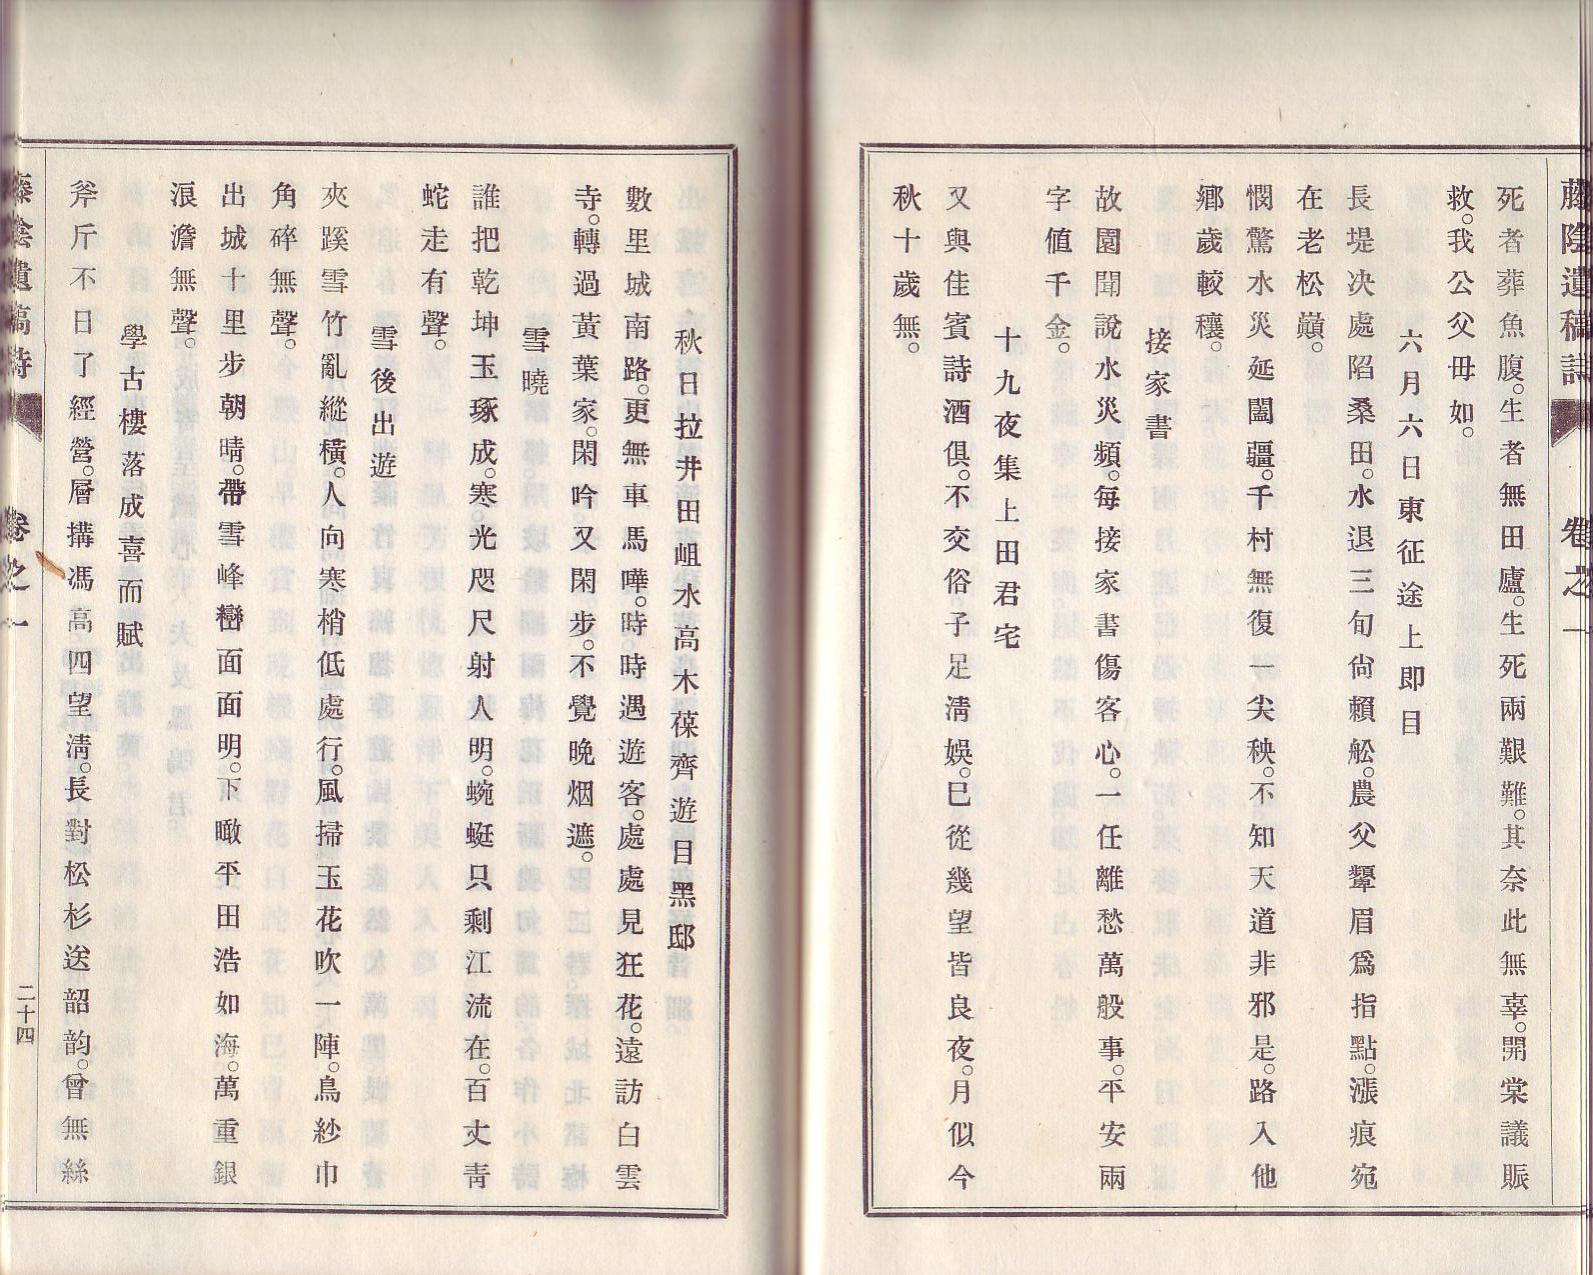 藤陰遺稿詩 卷之一
死者葬魚腹。生者無田廬。生死兩艱難。其奈此無辜。開棠議賑
救。我公父毋如。
六月六日東征途上即目
長堤決處陷桑田。水退三旬尙賴舩。農父顰眉爲指點。漲痕宛
在老松巔。
憫驚水災延闔疆。千村無復一尖秧。不知天道非邪是。路入他
鄕歲較穰。
接家書
故園聞說水災頻。每接家書傷客心。一任離愁萬般事。平安兩
字値千金。
十九夜集上田君宅
又與佳賓詩酒俱。不交俗子足淸娛。巳從幾望皆良夜。月似今
秋十歲無。
秋日拉井田岨水高木葆齊遊目黑邸
數里城南路。更無車馬嘩。時時遇遊客。處處見狂花。遠訪白雲
寺。轉過黃葉家。閑吟又閑步。不覺晚烟遮。
雪曉
誰把乾坤玉琢成。寒光咫尺射人明。蜿蜒只剩江流在。百丈靑
蛇走有聲。
雪後出遊
夾蹊雪竹亂縱橫。人向寒梢低處行。風掃玉花吹一陣。烏紗巾
角碎無聲。
出城十里步朝晴。帶雪峰巒面面明。下瞰平田浩如海。萬重銀
浪澹無聲。
學古樓落成喜而賦
斧斤不日了經營。層搆馮高四望淸。長對松杉送韶韵。曾無絲
藤陰遺稿詩 卷之一 二十四